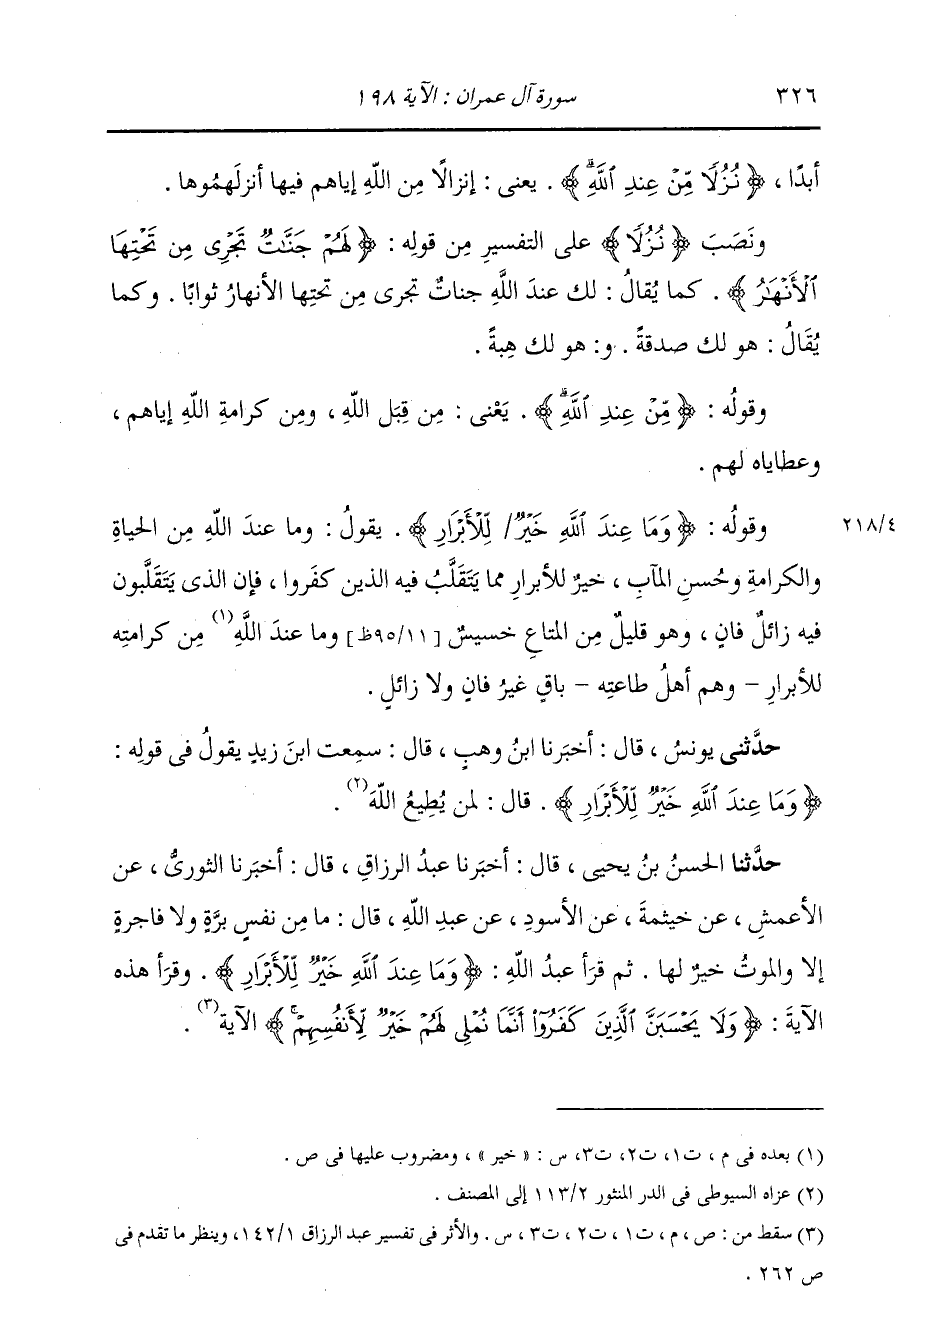 ٣٢٦ سورة آل عمران : الآية ١٩٨
أبدًا ، ﴿ نُزُلًا مِّنْ عِندِ ٱللَّهِۗ ﴾ . يعنى : إنزالًا مِن اللَّهِ إياهم فيها أنزلَهُموها .
ونَصَبَ ﴿ نُزُلًا ﴾ على التفسيرِ مِن قولِه : ﴿ لَهُمْ جَنَّٰتٌ تَجْرِى مِن تَحْتِهَا
ٱلْأَنْهَٰرُ ﴾ . كما يُقالُ : لك عندَ اللَّهِ جناتٌ تجرى مِن تحتِها الأنهارُ ثوابًا . وكما
يُقَالُ : هو لك صدقةً . و: هو لك هِبةً .
وقولُه : ﴿ مِّنْ عِندِ ٱللَّهِۗ ﴾ . يَعْنى : مِن قِبَل اللَّهِ ، ومِن كرامةِ اللَّهِ إياهم ،
وعطاياه لهم .
٢١٨/٤ وقولُه : ﴿ وَمَا عِندَ ٱللَّهِ خَيْرٌ/ لِّلْأَبْرَارِ ﴾ . يقولُ : وما عندَ اللَّهِ مِن الحياةِ
والكرامةِ وحُسنِ المآبِ ، خيرٌ للأبرارِ مما يَتَقَلَّبُ فيه الذين كفَروا ، فإن الذى يَتَقَلَّبون
فيه زائلٌ فانٍ ، وهو قليلٌ مِن المتاعِ خسيسٌ [ ٩٥/١١ظ ] وما عندَ اللَّهِ(١) مِن كرامتِه
للأبرارِ – وهم أهلُ طاعتِه – باقٍ غيرُ فانٍ ولا زائلٍ .
حدَّثنى يونسُ ، قال : أخبَرنا ابنُ وهبٍ ، قال : سمِعت ابنَ زيدٍ يقولُ فى قولِه :
﴿ وَمَا عِندَ ٱللَّهِ خَيْرٌ لِّلْأَبْرَارِ ﴾ . قال : لمن يُطِيعُ اللَّهَ(٢) .
حدَّثنا الحسنُ بنُ يحيى ، قال : أخبَرنا عبدُ الرزاقِ ، قال : أخبَرنا الثورىُّ ، عن
الأعمشِ ، عن خيثمةَ ، عن الأسودِ ، عن عبدِ اللَّهِ ، قال : ما مِن نفسٍ برَّةٍ ولا فاجرةٍ
إلا والموتُ خيرٌ لها . ثم قرَأ عبدُ اللَّهِ : ﴿ وَمَا عِندَ ٱللَّهِ خَيْرٌ لِّلْأَبْرَارِ ﴾ . وقرَأ هذه
الآيةَ : ﴿ وَلَا يَحْسَبَنَّ ٱلَّذِينَ كَفَرُوٓا۟ أَنَّمَا نُمْلِى لَهُمْ خَيْرٌ لِّأَنفُسِهِمْۚ ﴾ الآية(٣) .
(١) بعده فى م ، ت١، ت٢، ت٣، س : « خير » ، ومضروب عليها فى ص .
(٢) عزاه السيوطى فى الدر المنثور ١١٣/٢ إلى المصنف .
(٣) سقط من : ص ، م ، ت١ ، ت٢ ، ت٣ ، س . والأثر فى تفسير عبد الرزاق ١٤٢/١، وينظر ما تقدم فى
ص ٢٦٢ .